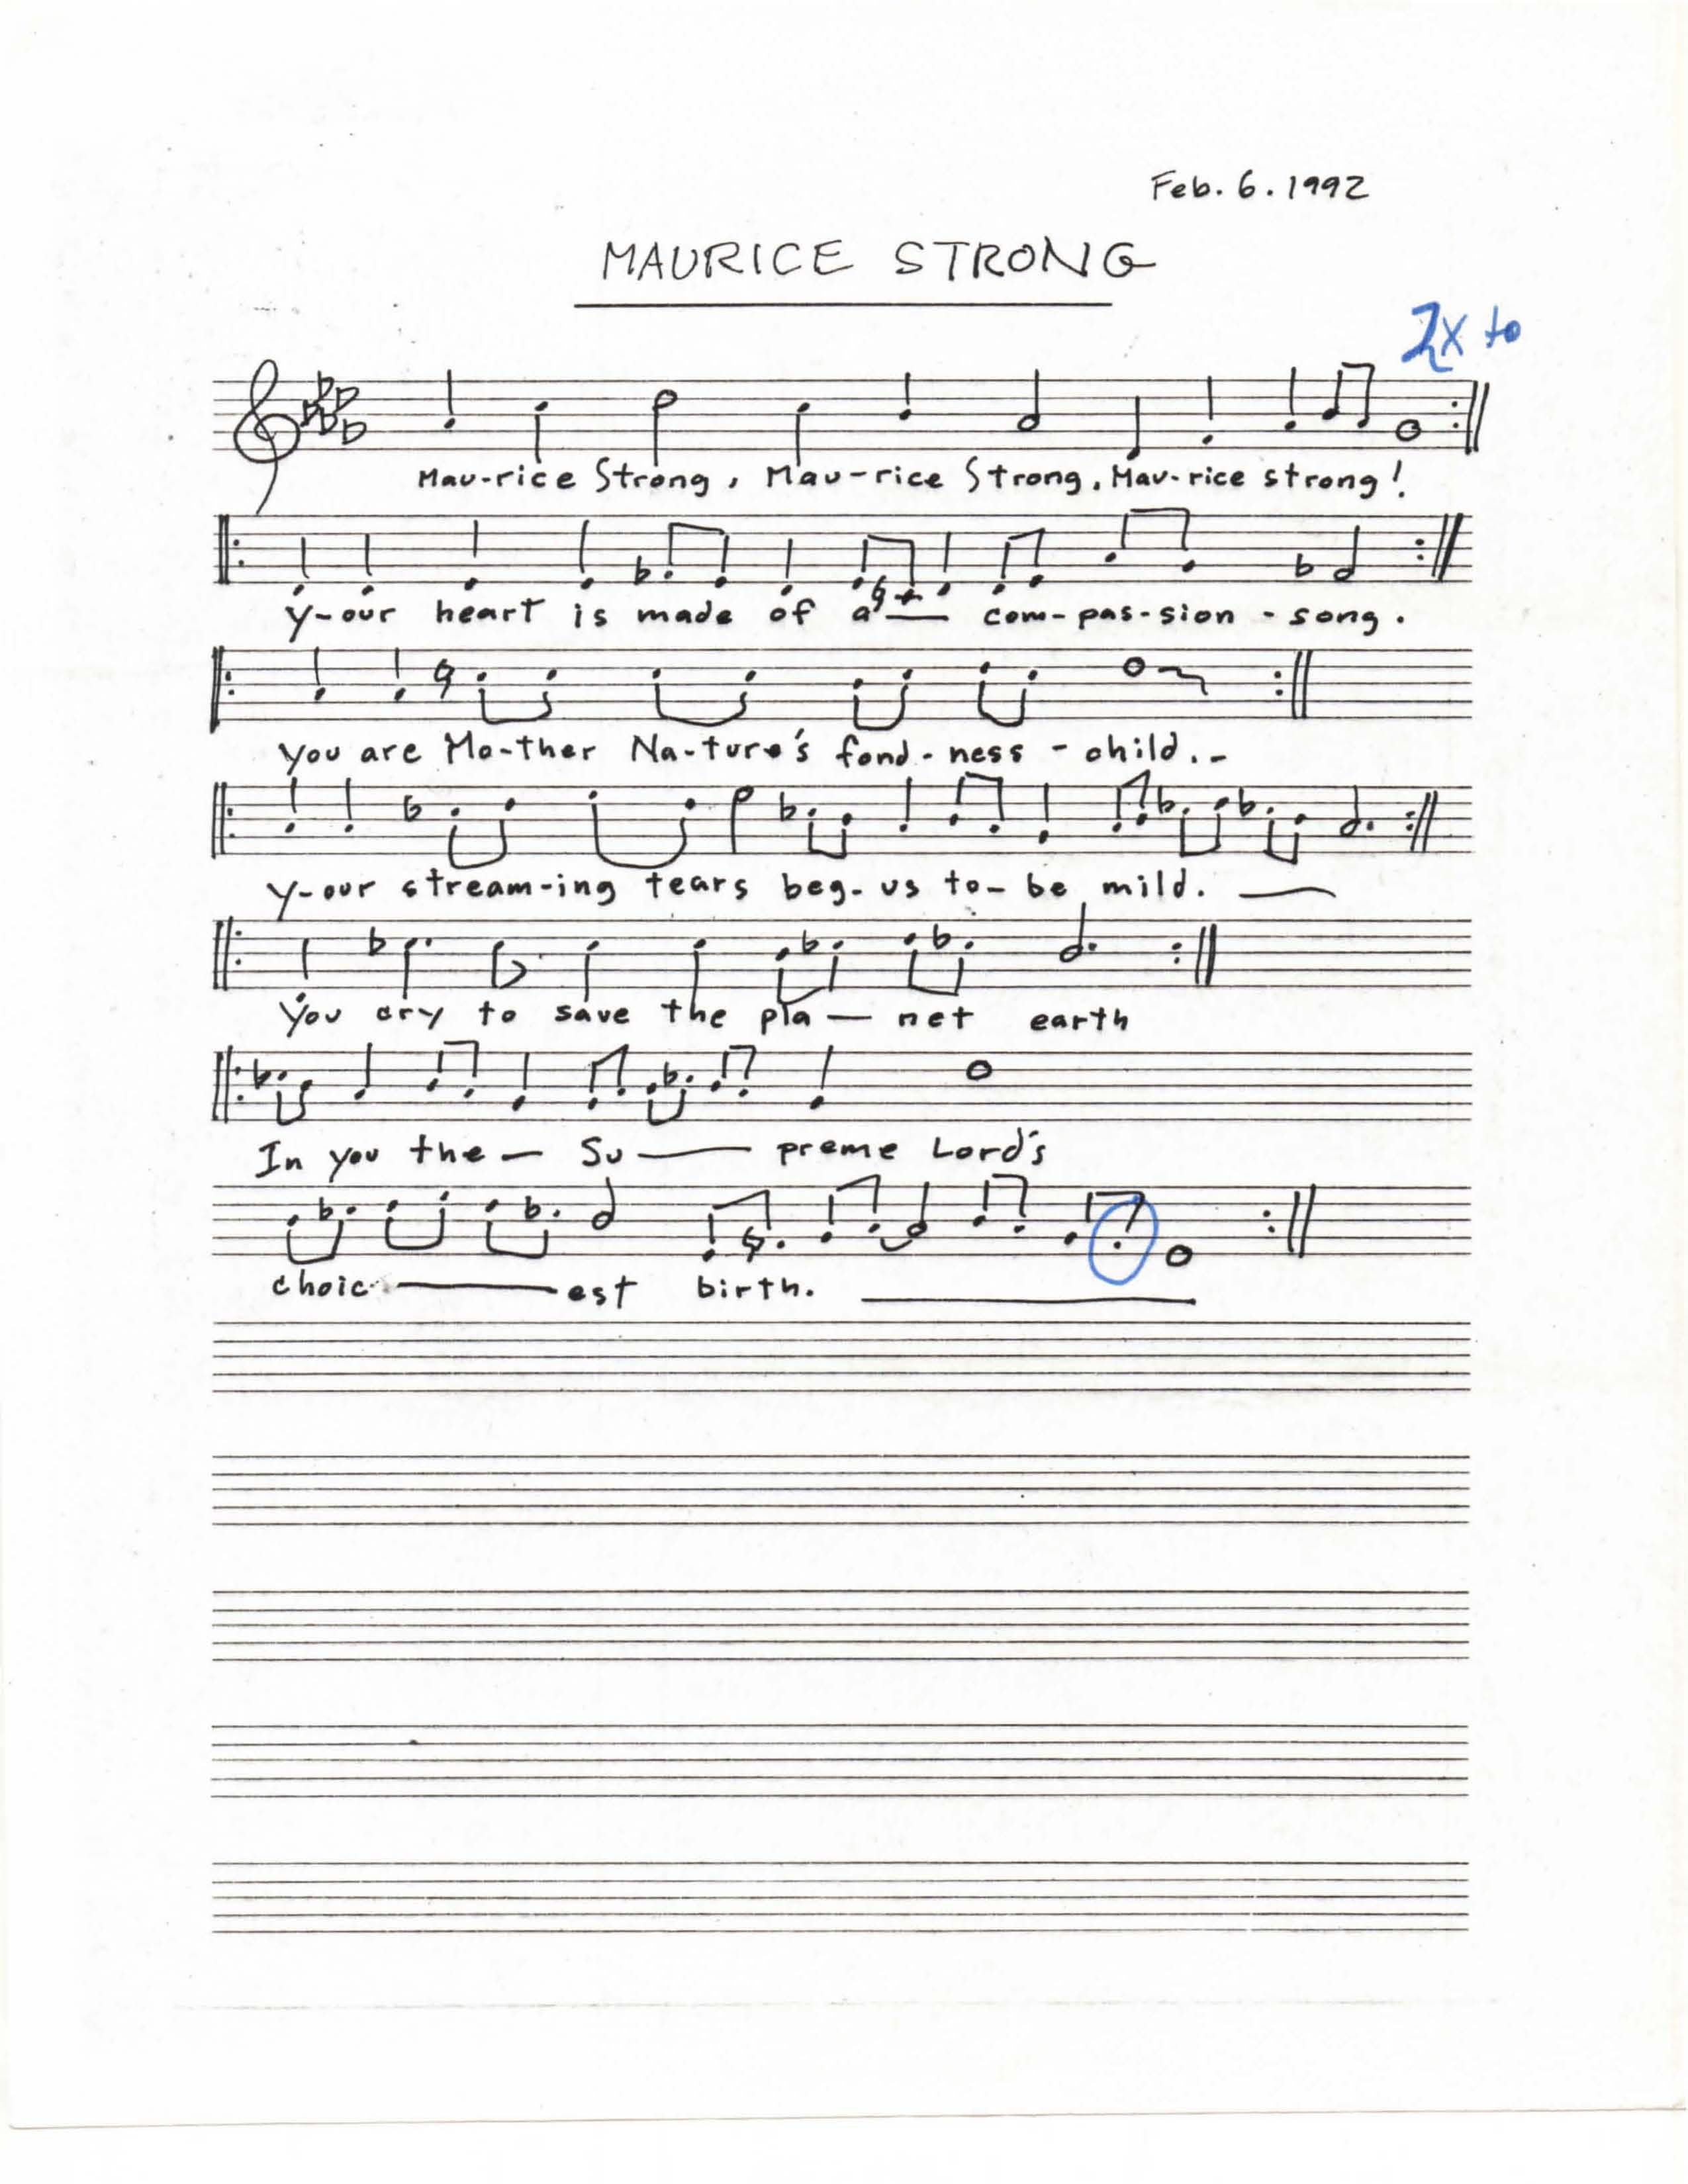 Feb. 6. 1992
MAURICE STRONG
2x to
Mau-rice Strong, Mau-rice Strong, Mau-rice strong!
Y-our heart is made of a — com-pas-sion-song.
You are Mo-ther Na-ture's fond-ness-child.-
Y-our stream-ing tears beg-us to-be mild. —
You cry to save the pla — net earth
In you the — Su — preme Lord's
choic — est birth. —